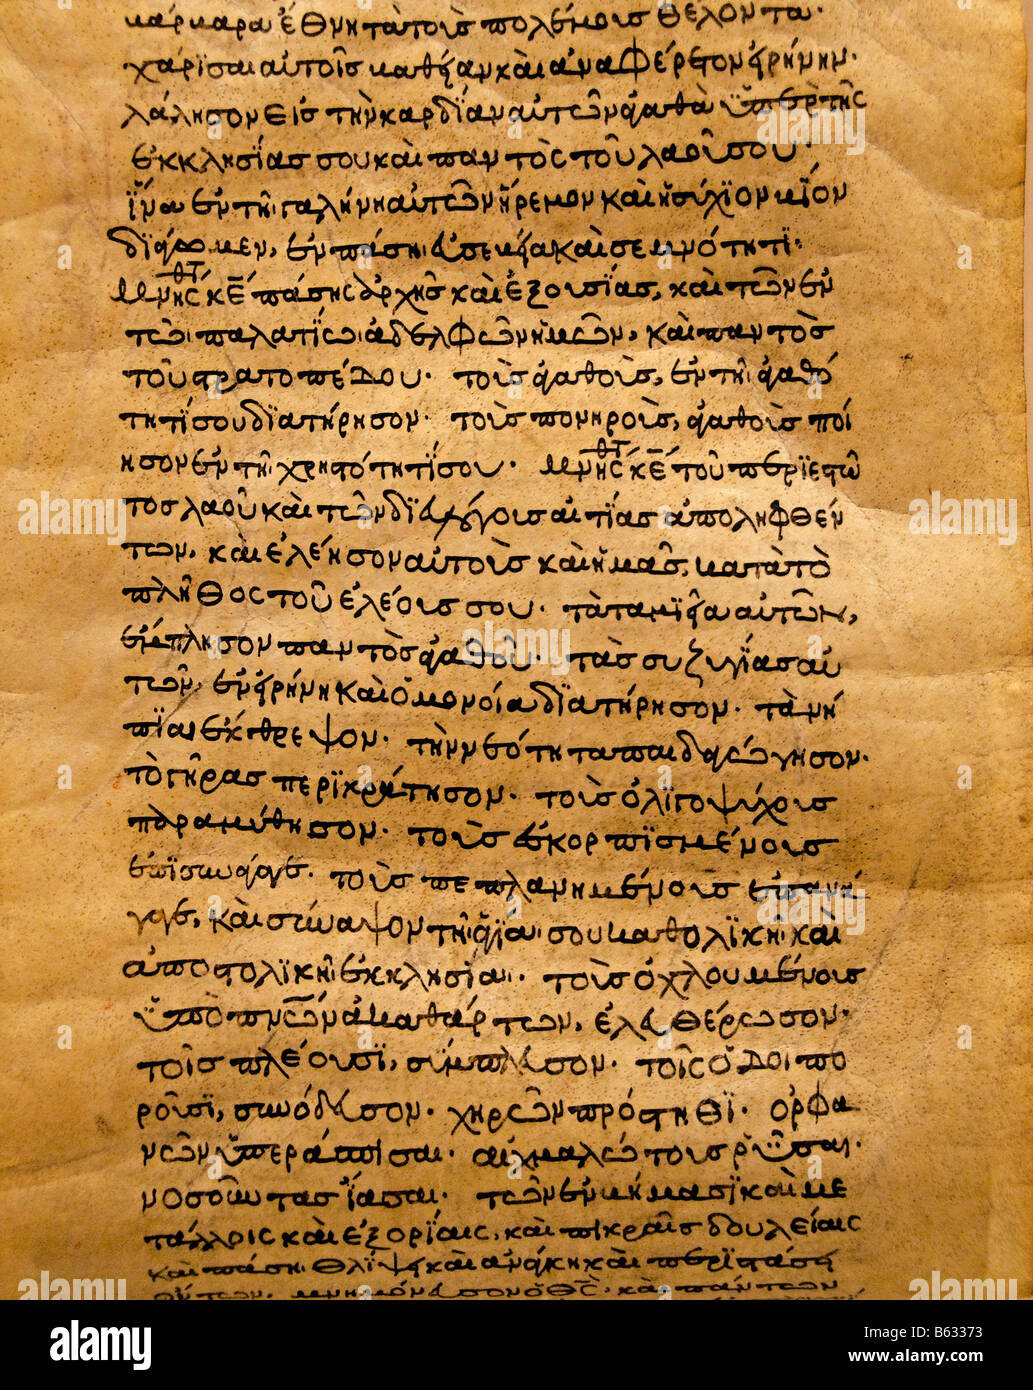 βάρβαρα ἔθνη τὰ τοὺς πολέμους θέλοντα·
χάρισαι αὐτοῖς βαθεῖαν καὶ ἀναφέρετον εἰρήνην·
λάλησον εἰς τὴν καρδίαν αὐτῶν ἀγαθὰ ὑπὲρ τῆς
ἐκκλησίας σου καὶ παντὸς τοῦ λαοῦ σου·
ἵνα ἐν τῇ γαλήνῃ αὐτῶν ἤρεμον καὶ ἡσύχιον βίον
διάγωμεν, ἐν πάσῃ εὐσεβείᾳ καὶ σεμνότητι·
μνήσθητι κε πάσης ἀρχῆς καὶ ἐξουσίας, καὶ τῶν ἐν
τῷ παλατίῳ ἀδελφῶν ἡμῶν, καὶ παντὸς
τοῦ στρατοπέδου· τοὺς ἀγαθοὺς, ἐν τῇ ἀγαθό
τητί σου διατήρησον· τοὺς πονηροὺς, ἀγαθοὺς ποί
ησον ἐν τῇ χρηστότητί σου· μνήσθητι κε τοῦ περιεστῶ
τος λαοῦ καὶ τῶν δι εὐλόγους αἰτίας ἀπολειφθέν
των, καὶ ἐλέησον αὐτοὺς καὶ ἡμᾶς, κατὰ τὸ
πλῆθος τοῦ ἐλέους σου· τὰ ταμιεῖα αὐτῶν,
ἔμπλησον παντὸς ἀγαθοῦ· τὰς συζυγίας αὐ
τῶν, ἐν εἰρήνῃ καὶ ὁμονοίᾳ διατήρησον· τὰ νή
πια ἔκθρεψον· τὴν νεότητα παιδαγώγησον·
τὸ γῆρας περικράτησον· τοὺς ὀλιγοψύχους
παραμύθησον· τοὺς ἐσκορπισμένους
ἐπισυνάγαγε· τοὺς πεπλανημένους ἐπανά
γαγε, καὶ σύναψον τῇ ἁγίᾳ σου καθολικῇ καὶ
ἀποστολικῇ ἐκκλησίᾳ· τοὺς ὀχλουμένους
ὑπὸ πνῶν ἀκαθάρτων, ἐλευθέρωσον·
τοῖς πλέουσι, σύμπλευσον· τοῖς ὁδοιπο
ροῦσι, συνόδευσον· χηρῶν πρόστηθι· ὀρφα
νῶν ὑπεράσπισαι· αἰχμαλώτους ῥῦσαι·
νοσοῦντας ἴασαι· τῶν ἐν βήμασι καὶ με
τάλλοις καὶ ἐξορίαις, καὶ πικραῖς δουλείαις
καὶ πάσῃ θλίψει καὶ ἀνάγκῃ καὶ περιστάσει
ὄντων· μνημόνευσον ὁ θς· καὶ πάντων
alamy
Image ID: B63373
www.alamy.com